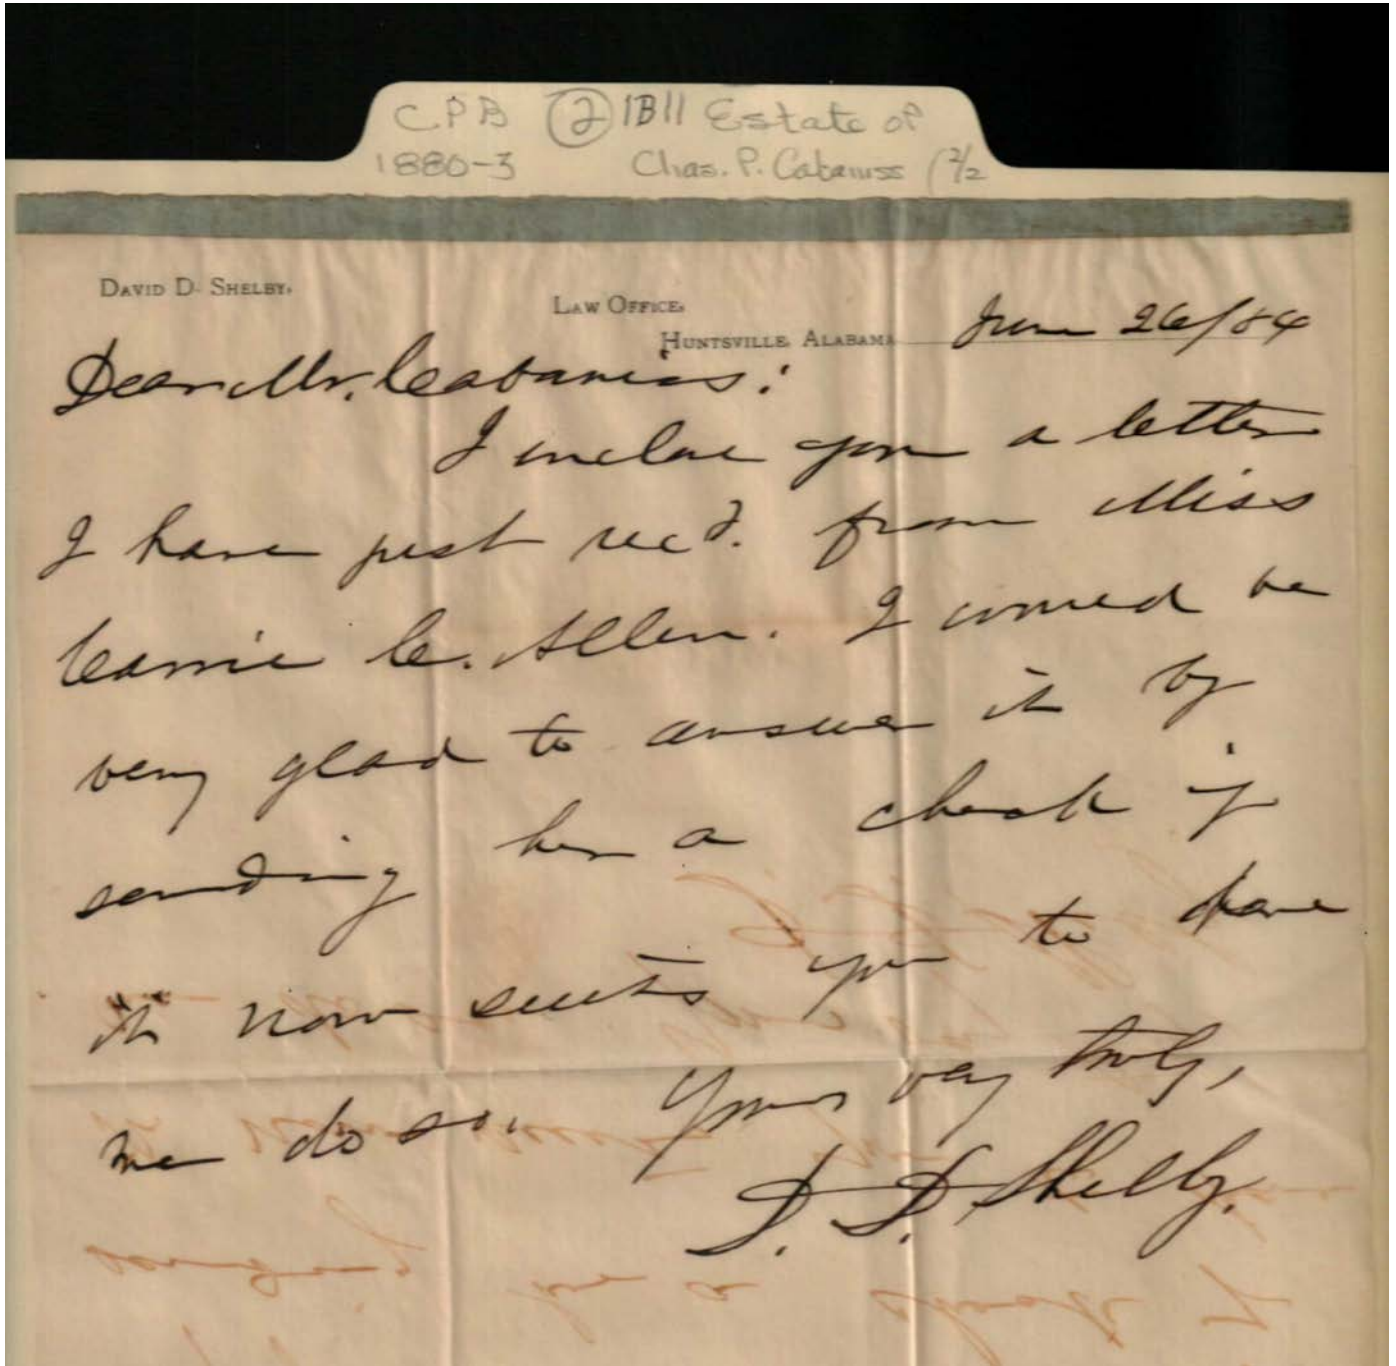 CPB ② 1B11 Estate of
1880-3 Chas. P. Cabaniss (2/2
DAVID D. SHELBY,
LAW OFFICE,
HUNTSVILLE, ALABAMA June 26/84
Dear Mr. Cabaniss:
I inclose you a letter
I have just recd. from Miss
Carrie C. Allen. I would be
very glad to answer it by
sending her a check if
it now suits you to have
me do so. Yours very truly,
D. D. Shelby.